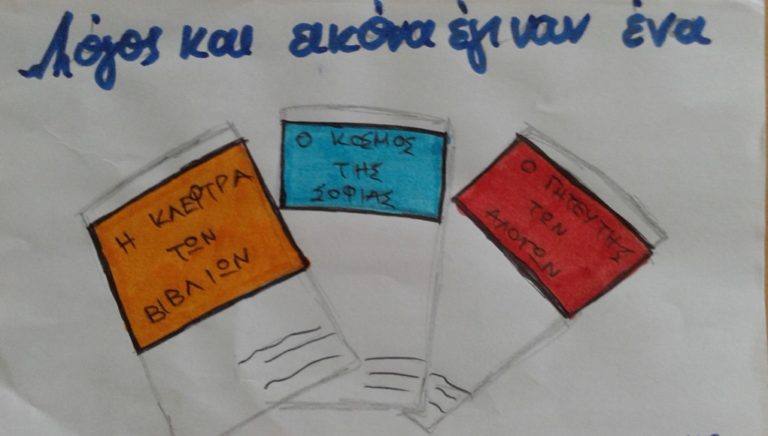 Λόγος και εικόνα έγιναν ένα
Η ΚΛΕΦΤΡΑ
ΤΩΝ
ΒΙΒΛΙΩΝ
Ο ΚΟΣΜΟΣ
ΤΗΣ
ΣΟΦΙΑΣ
Ο ΓΗΤΕΥΤΗΣ
ΤΩΝ
ΑΛΟΓΩΝ